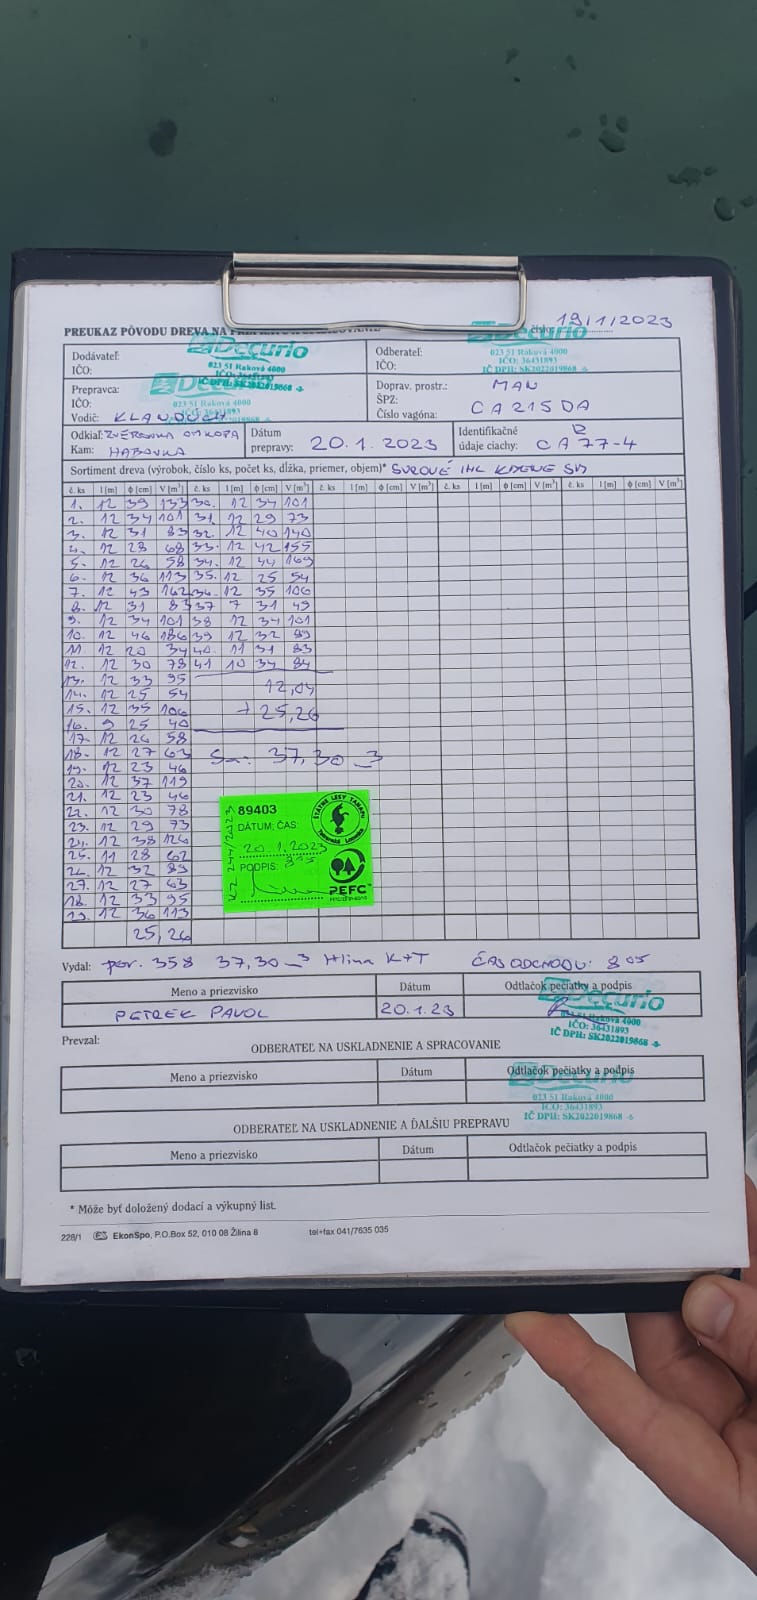 PREUKAZ PÔVODU DREVA NA
číslo 19/1/2023
Decurio
023 51 Raková 4000
IČO: 36431893
IČ DPH: SK2022019868
Dodávateľ:
IČO:
Odberateľ:
IČO:
Decurio
023 51 Raková 4000
IČO: 36431893
IČ DPH: SK2022019868
Prepravca:
IČO:
Vodič: KLANDUCH
Doprav. prostr.: MAN
ŠPZ: CA215DA
Číslo vagóna:
Odkiaľ: ZVEROVKA
Kam: HABOVKA
Dátum prepravy: 20.1.2023
Identifikačné údaje ciachy: CA77-4
Sortiment dreva (výrobok, číslo ks, počet ks, dĺžka, priemer, objem)* SUROVÉ IHL KMENE SM
č. ks l [m] ϕ [cm] V [m³] č. ks l [m] ϕ [cm] V [m³] č. ks l [m] ϕ [cm] V [m³] č. ks l [m] ϕ [cm] V [m³] č. ks l [m] ϕ [cm] V [m³]
1. 12 39 133 30. 12 34 101
2. 12 34 101 31 12 29 73
3. 12 31 83 32. 12 40 140
4. 12 28 68 33. 12 42 155
5. 12 26 58 34. 12 44 169
6. 12 36 113 35. 12 25 54
7. 12 43 162 36. 12 35 106
8. 12 31 83 37 7 31 49
9. 12 34 101 38 12 34 101
10. 12 46 186 39 12 32 89
11. 12 20 34 40. 11 31 83
12. 12 30 78 41 10 34 84
13. 12 33 95
14. 12 25 54 12,04
15. 12 35 106 + 25,26
16. 9 25 40
17. 12 26 58
18. 12 27 63 37,30
19. 12 23 46
20. 12 37 119
21. 12 23 46
22. 12 30 78
23. 12 29 73
24. 12 38 126
25. 11 28 62
26. 12 32 89
27. 12 27 63
28. 12 33 95
29. 12 36 113
25,26
89403
DÁTUM; ČAS
20.1.2023
PODPIS:
ŠTÁTNE LESY TANAPU
Tatranská Lomnica
PEFC
Vydal: por. 358 37,30 Hlina K+T ČAS ODCHODU: 8 05
Meno a priezvisko Dátum Odtlačok pečiatky a podpis
PETREK PAVOL 20.1.23
Decurio
023 51 Raková 4000
IČO: 36431893
IČ DPH: SK2022019868
Prevzal:
ODBERATEĽ NA USKLADNENIE A SPRACOVANIE
Meno a priezvisko Dátum Odtlačok pečiatky a podpis
Decurio
023 51 Raková 4000
IČO: 36431893
IČ DPH: SK2022019868
ODBERATEĽ NA USKLADNENIE A ĎALŠIU PREPRAVU
Meno a priezvisko Dátum Odtlačok pečiatky a podpis
* Môže byť doložený dodací a výkupný list.
228/1 EkonSpo, P.O.Box 52, 010 08 Žilina 8 tel+fax 041/7635 035